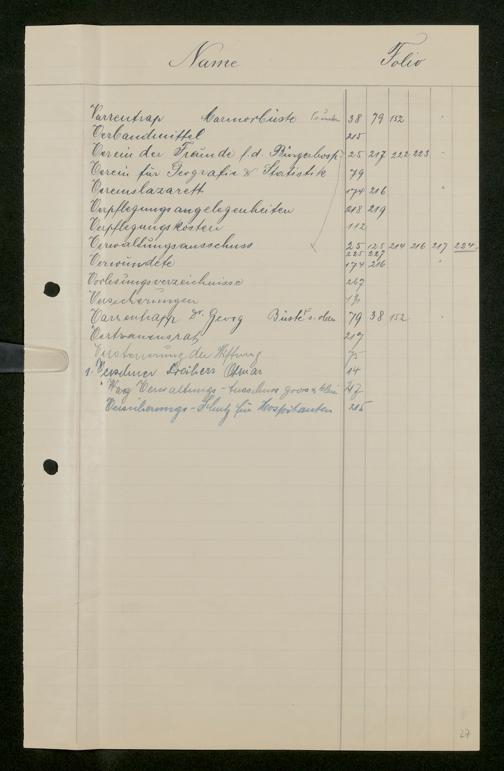 Name Folio
Varrentrap Marmorbüste 38 79 152
Verbandmittel 215
Verein der Freunde f. d. Bürgerhosp. 25 217 222 223
Verein für Geografie & Statistik 79
Vereinslazarett 174 216
Verpflegungsangelegenheiten 218 219
Verpflegungskosten 112
Verwaltungsausschuss 25 125 214 216 217 224
225 227
Verwundete 174 216
Vorlesungsverzeichnisse 267
Versicherungen
Varrentrapp Dr. Georg Büste 79 38 152
Vertrauensrat 217
Versteuerung der Stiftung 75
14
Verwaltungs-Ausschuss gross & klein 217
Versicherungs-Schutz für Hospitanten 215
27